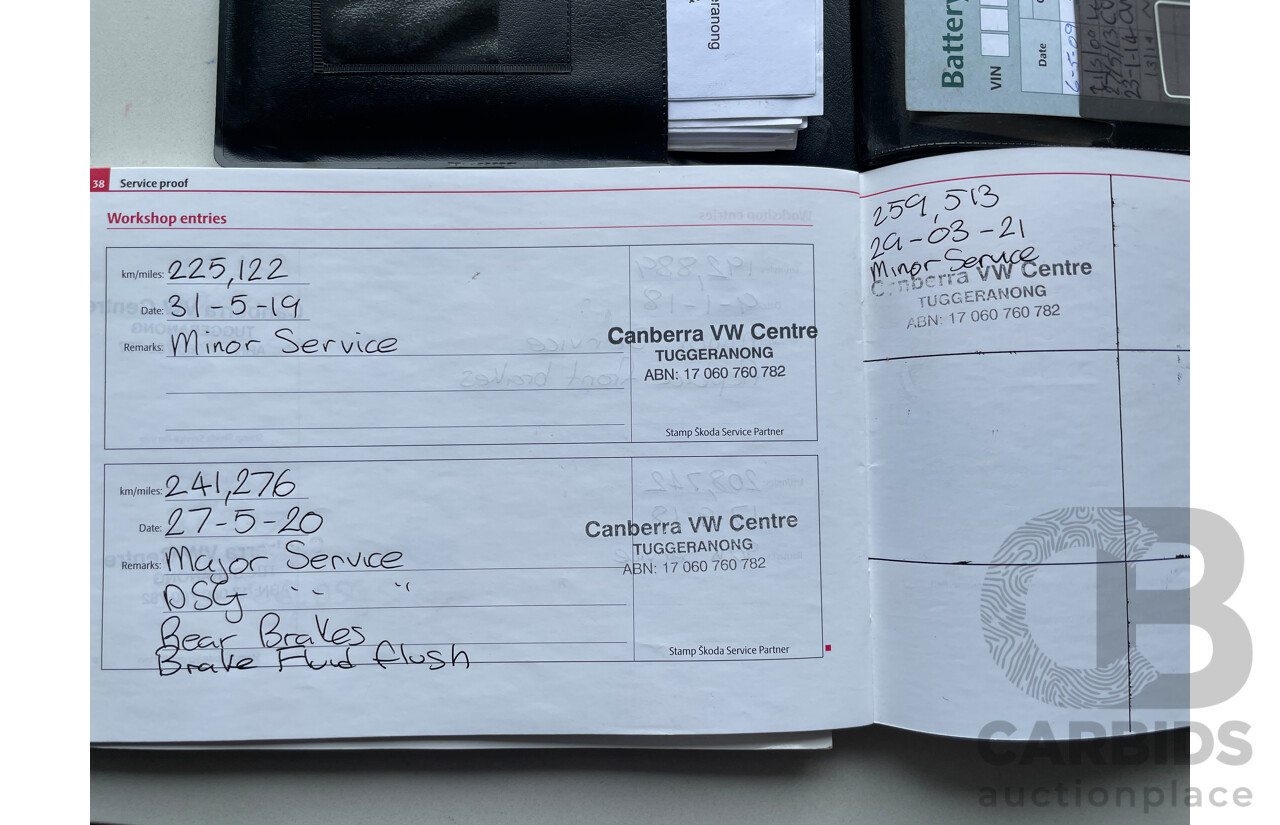 eranong
Battery
VIN
Date
6-5-09
23-1-14
38 Service proof
Workshop entries
km/miles: 225,122
Date: 31-5-19
Remarks: Minor Service
Canberra VW Centre
TUGGERANONG
ABN: 17 060 760 782
Stamp Škoda Service Partner
km/miles: 241,276
Date: 27-5-20
Remarks: Major Service
DSG " "
Rear Brakes
Brake Fluid flush
Canberra VW Centre
TUGGERANONG
ABN: 17 060 760 782
Stamp Škoda Service Partner
259,513
29-03-21
Minor Service
Canberra VW Centre
TUGGERANONG
ABN: 17 060 760 782
CB
CARBIDS
auctionplace